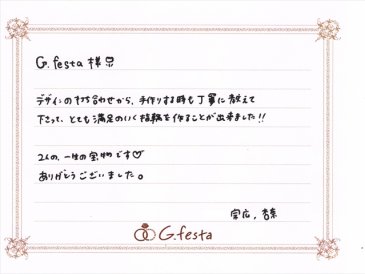 G.festa 様
デザインの打ち合わせから、手作りする時も丁寧に教えて
下さって、とても満足のいく指輪を作ることが出来ました!!
2人の、一生の宝物です♡
ありがとうございました。
宗広、杏奈
G.festa